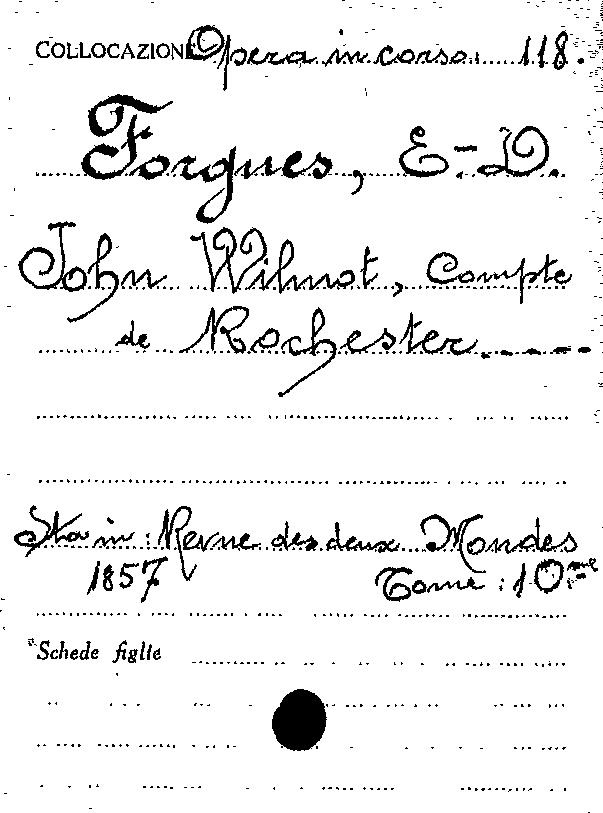 COLLOCAZIONE Opera in corso: 118.
Forgues, E.-D.
John Wilmot, Compte
de Rochester.-----
Sta in: Revue des deux Mondes
1857 Tome: 10.me
Schede figlie